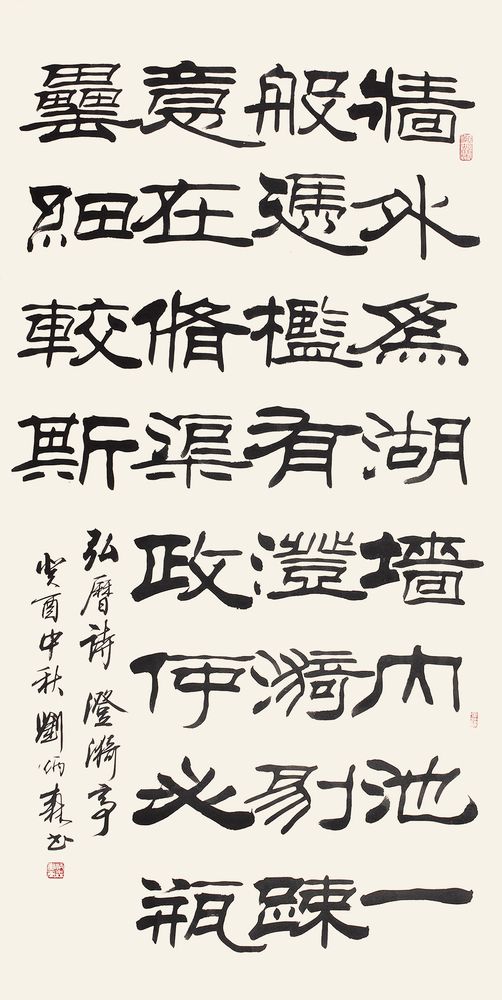 牆外為湖墻內池一
般憑檻有澄漪別踈
意在脩渠政何必瓶
罍細較斯
弘曆詩 澄漪亭
癸酉中秋劉炳森書